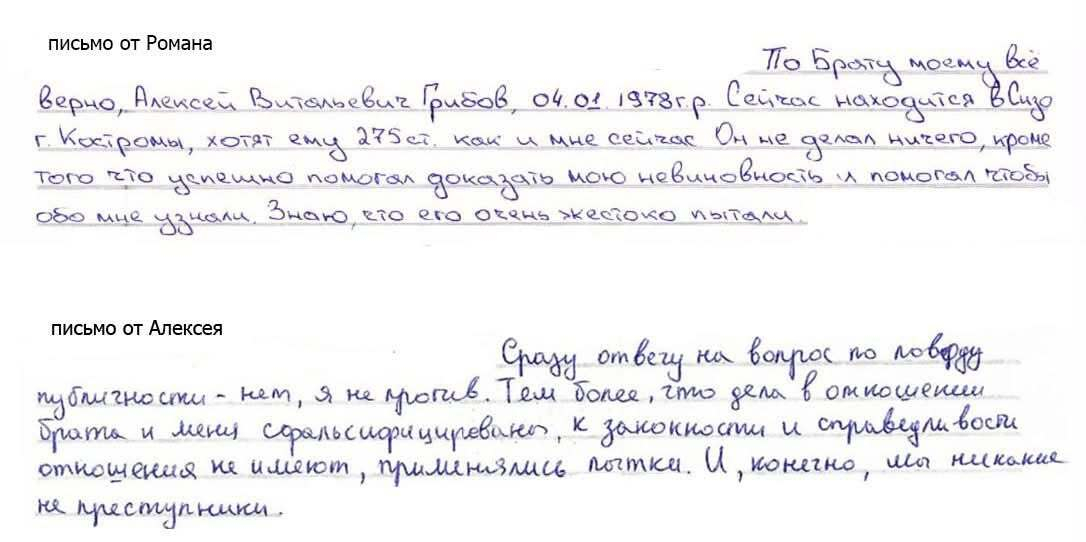 письмо от Романа
По Брату моему всё
верно, Алексей Витальевич Грибов, 04.01.1978г.р. Сейчас находится в Сизо
г. Костромы, хотят ему 275ст. как и мне сейчас Он не делал ничего, кроме
того что успешно помогал доказать мою невиновность и помогал чтобы
обо мне узнали. Знаю, что его очень жестоко пытали.
письмо от Алексея
Сразу отвечу на вопрос по поводу
публичности - нет, я не против. Тем более, что дела в отношении
брата и меня сфальсифицированы, к законности и справедливости
отношения не имеют, применялись пытки. И, конечно, мы никакие
не преступники.